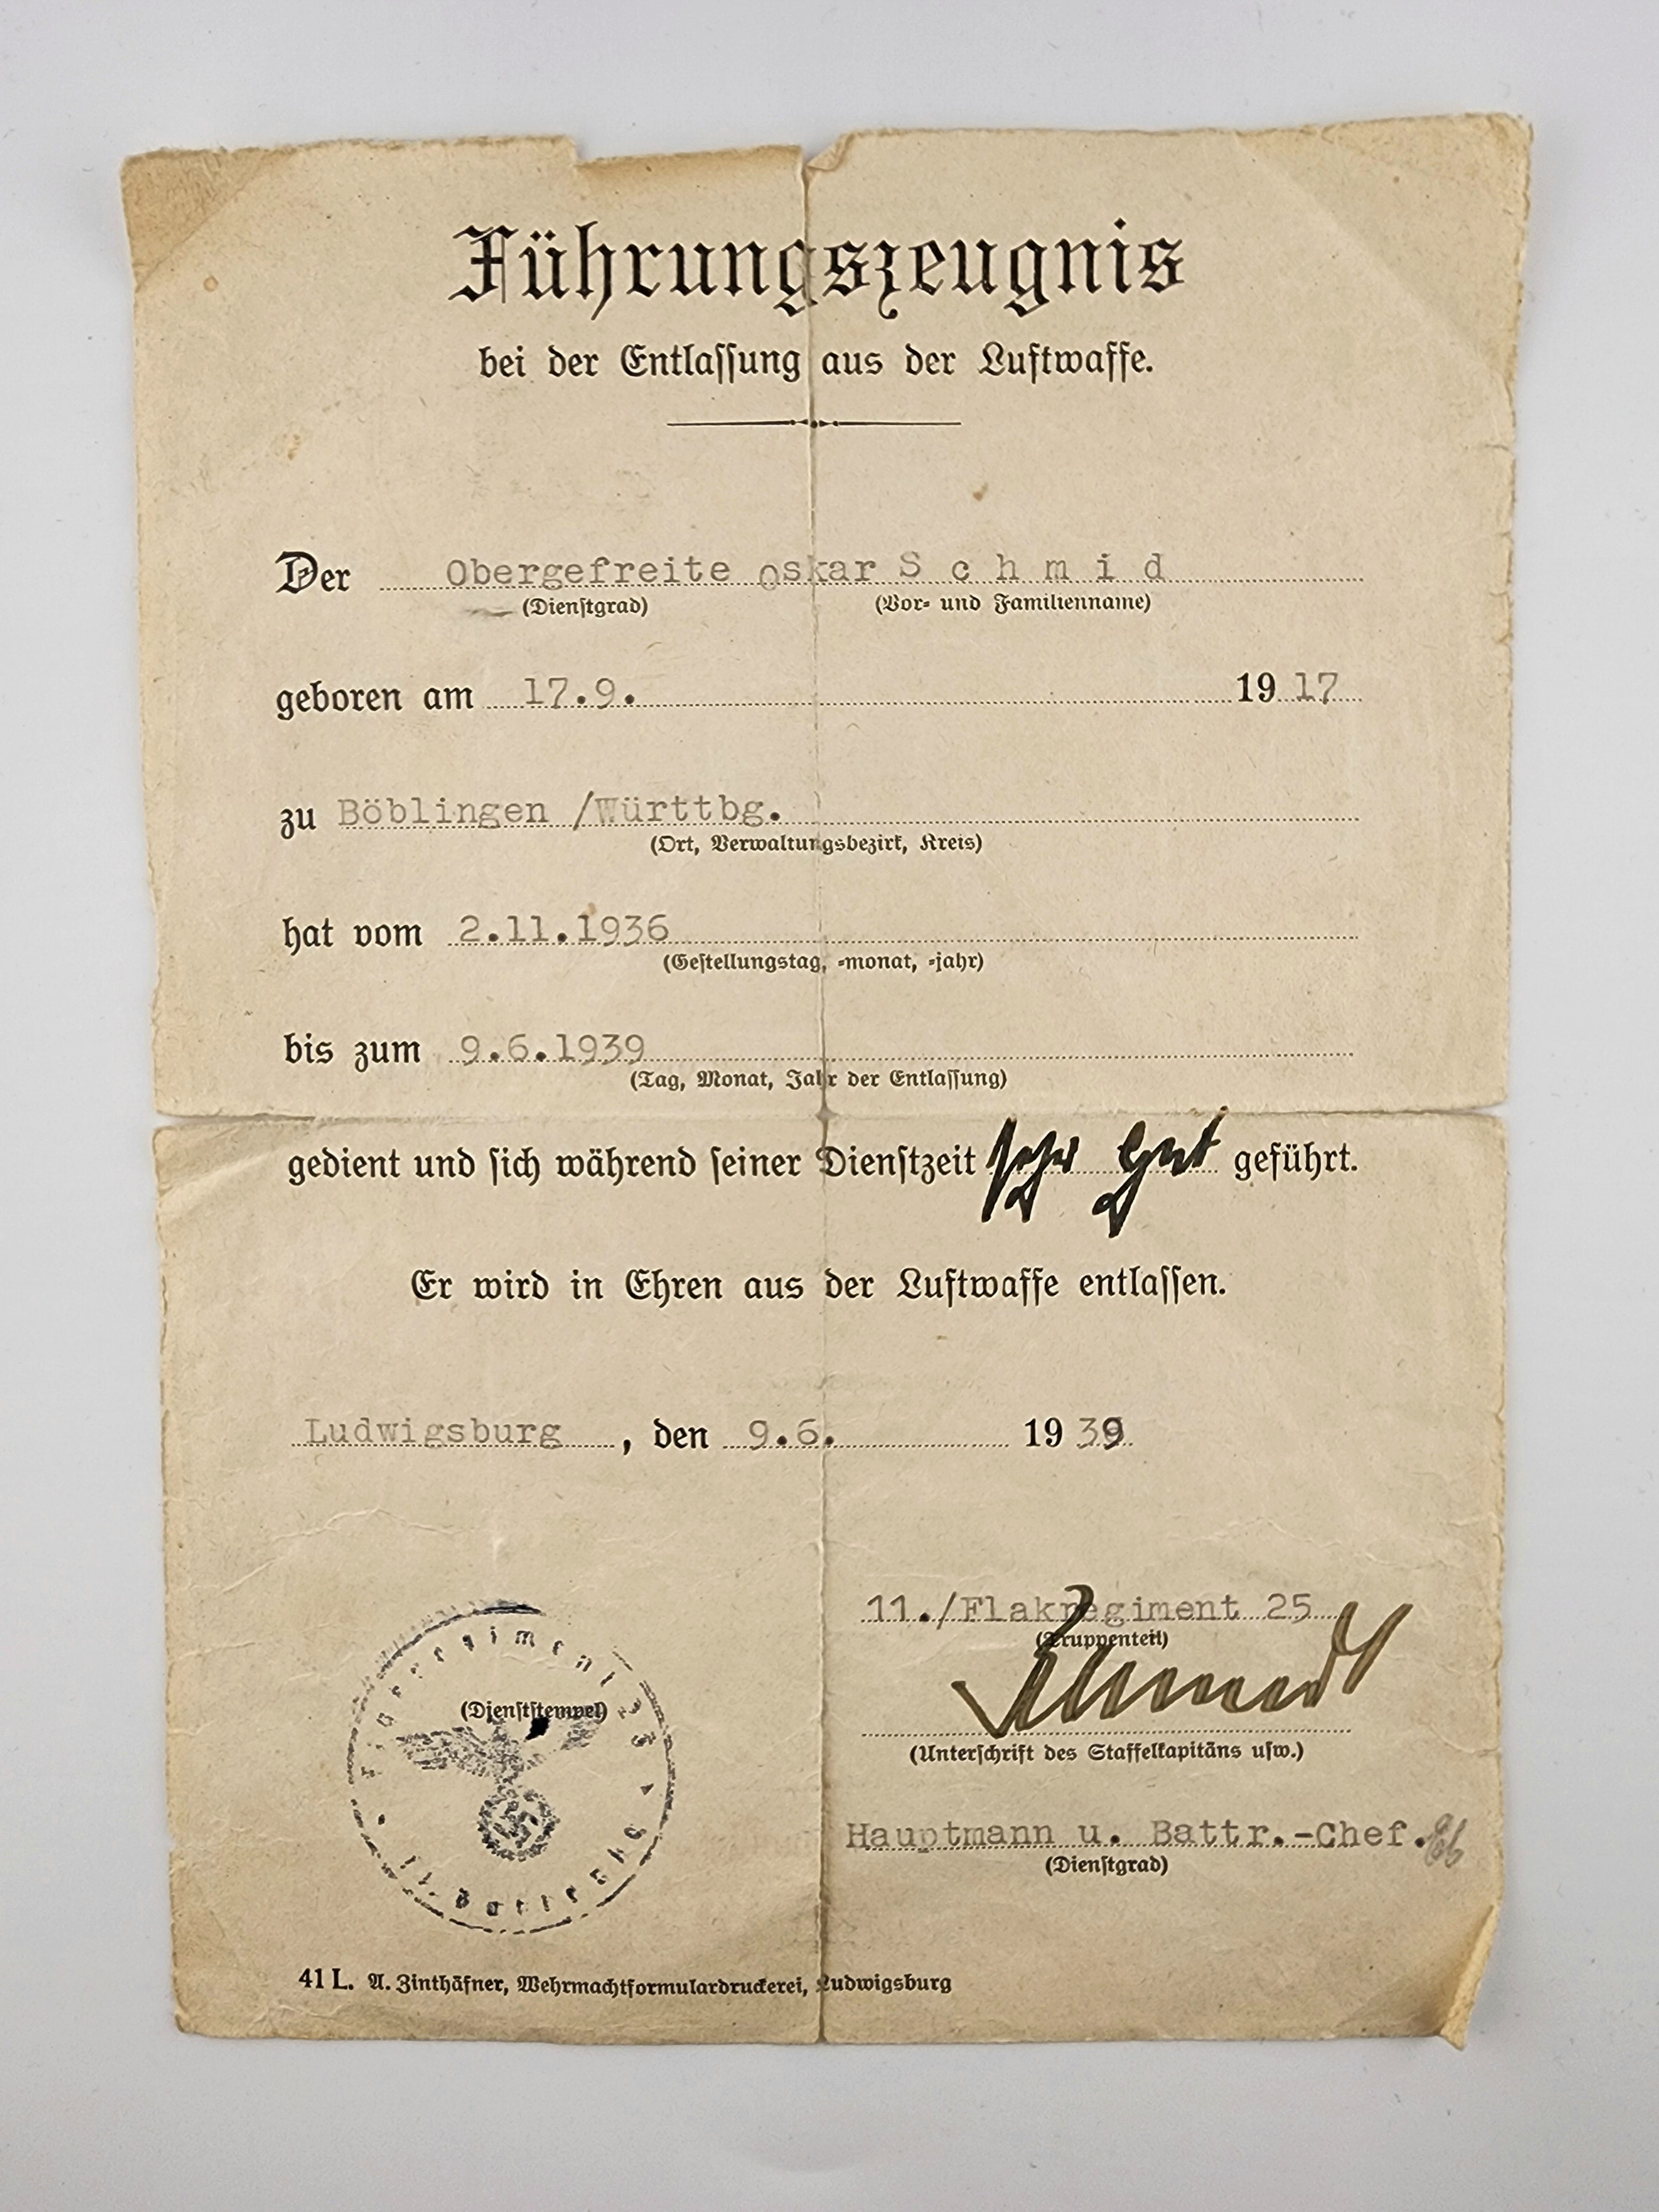 Führungszeugnis
bei der Entlassung aus der Luftwaffe.
Der Obergefreite Oskar S c h m i d
(Dienstgrad) (Vor- und Familienname)
geboren am 17.9. 1917
zu Böblingen /Württbg.
(Ort, Verwaltungsbezirk, Kreis)
hat vom 2.11.1936
(Gestellungstag, -monat, -jahr)
bis zum 9.6.1939
(Tag, Monat, Jahr der Entlassung)
gedient und sich während seiner Dienstzeit sehr gut geführt.
Er wird in Ehren aus der Luftwaffe entlassen.
Ludwigsburg, den 9.6. 1939
11./Flakregiment 25
(Truppenteil)
(Dienststempel)
(Unterschrift des Staffelkapitäns usw.)
Hauptmann u. Battr.-Chef.
(Dienstgrad)
41 L. A. Zinthäfner, Wehrmachtformulardruckerei, Ludwigsburg